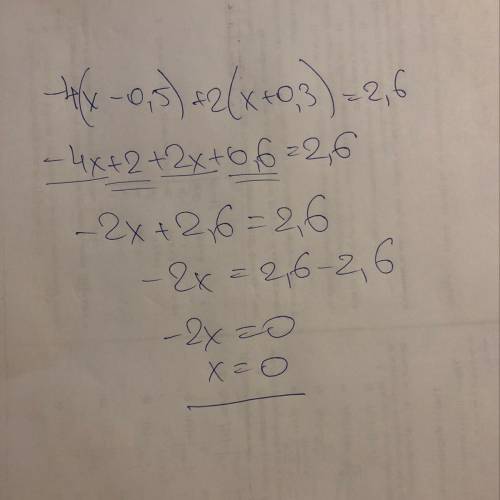 -4(x-0,5)+2(x+0,3)=2,6
-4x+2+2x+0,6=2,6
-2x+2,6=2,6
-2x=2,6-2,6
-2x=0
x=0